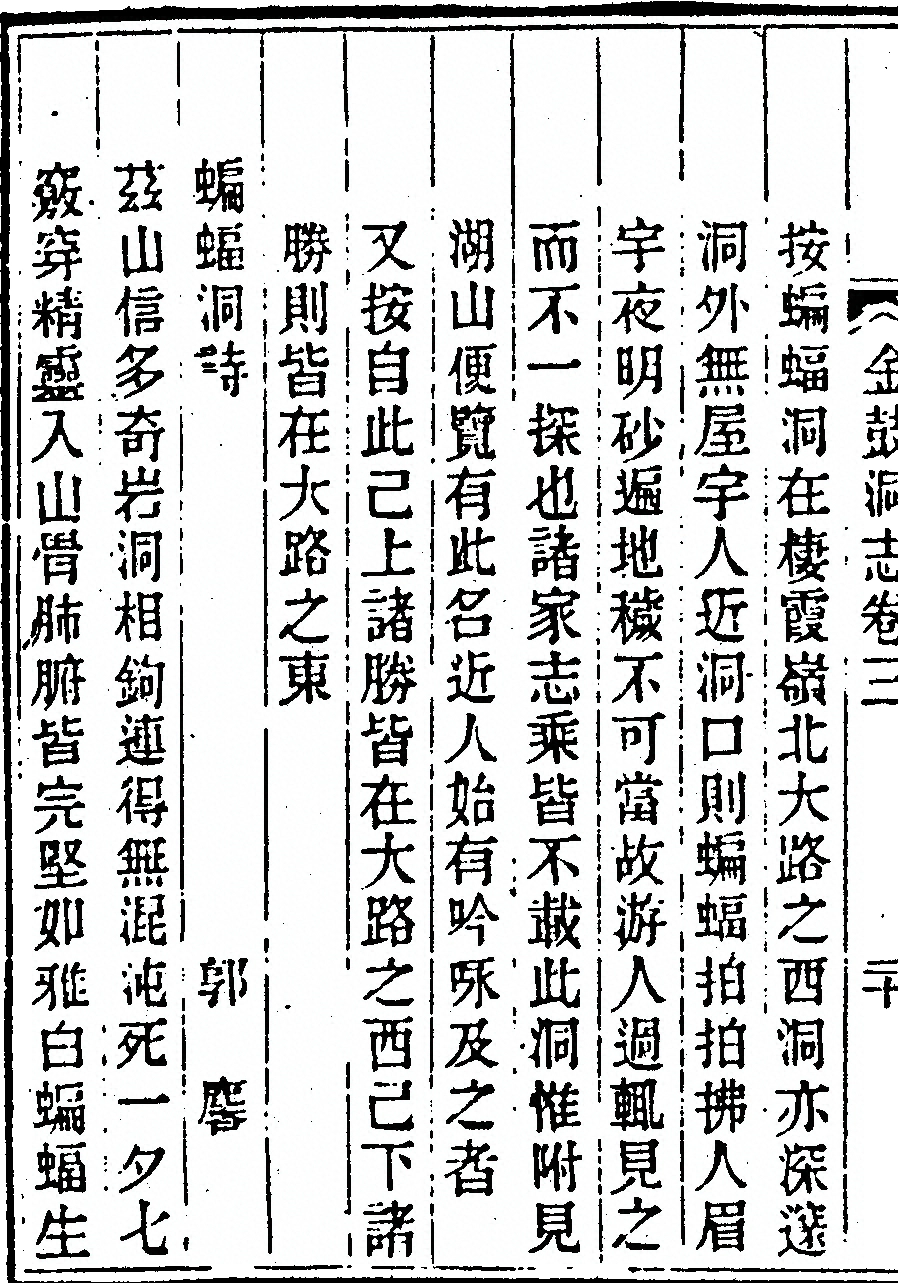 金鼓洞志卷三 二十
按蝙蝠洞在棲霞嶺北大路之西洞亦深邃
洞外無屋宇人近洞口則蝙蝠拍拍拂人眉
宇夜明砂遍地穢不可當故游人過輒見之
而不一探也諸家志乘皆不載此洞惟附見
湖山便覽有此名近人始有吟咏及之者
又按自此己上諸勝皆在大路之西己下諸
勝則皆在大路之東
蝙蝠洞詩 郭麐
茲山信多奇岩洞相鉤連得無混沌死一夕七
竅穿精靈入山骨肺腑皆完堅如雅白蝙蝠生